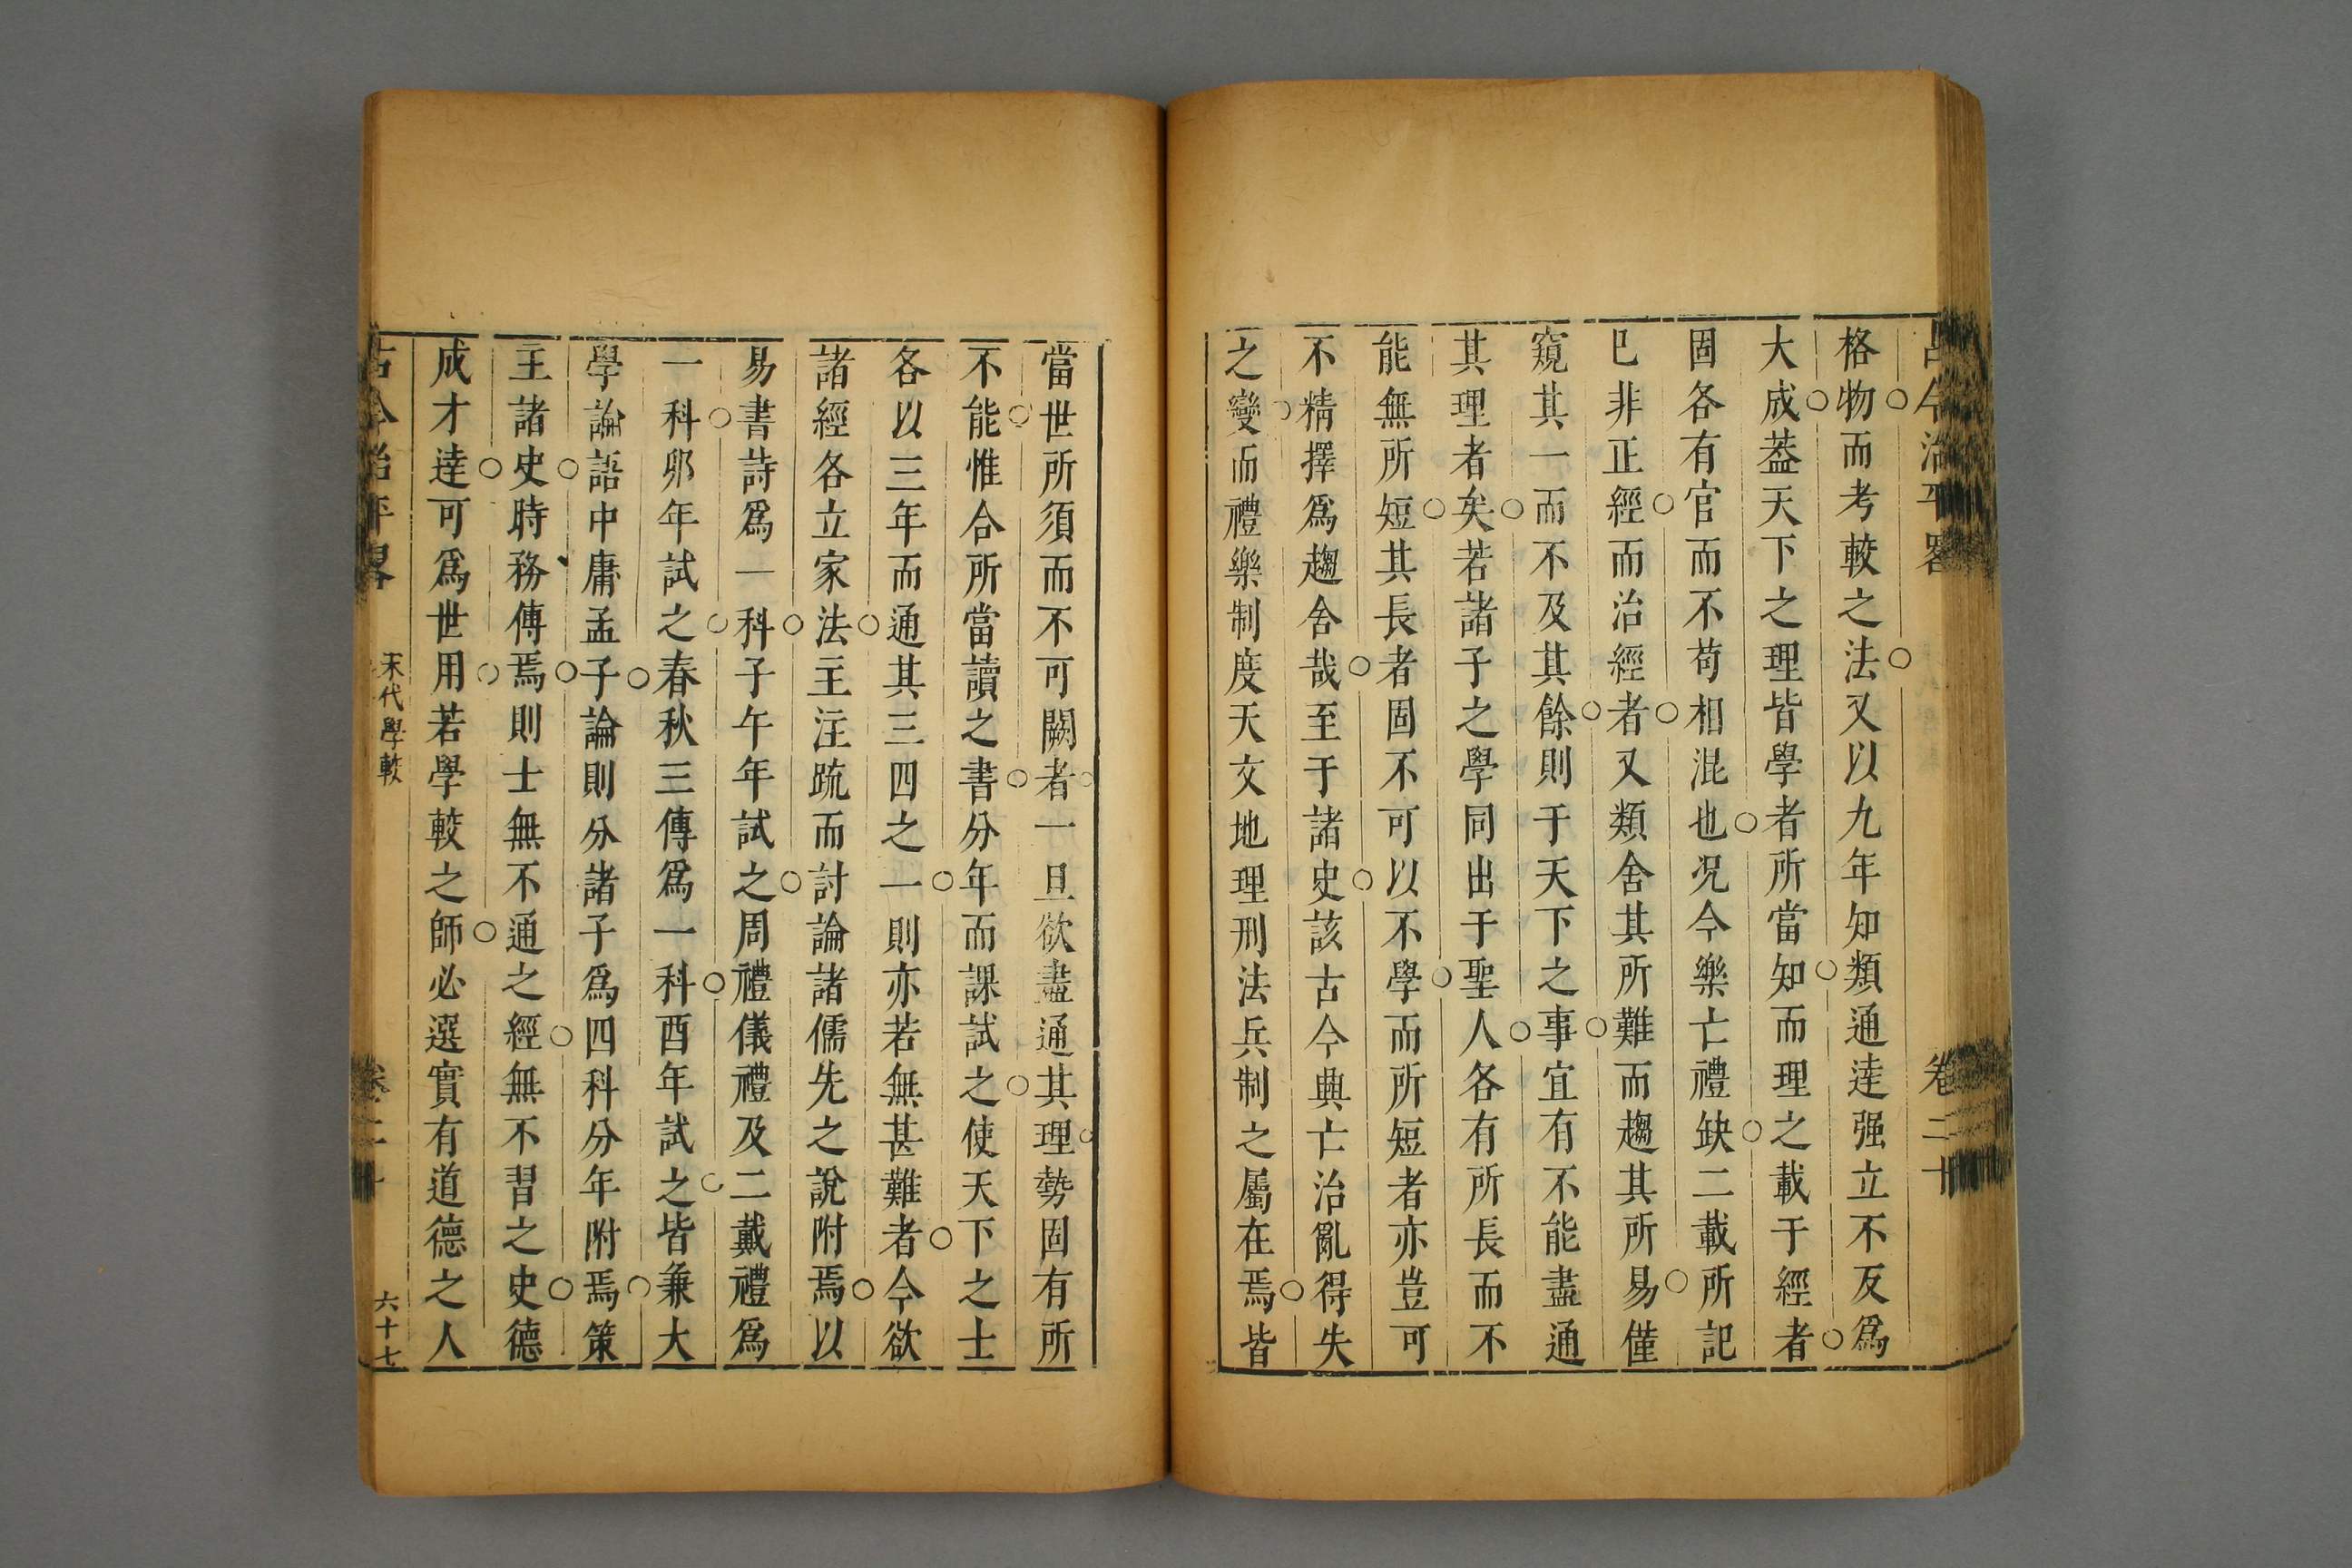 古今治平畧 卷二十
格物而考較之法又以九年知類通達强立不反爲
大成葢天下之理皆學者所當知而理之載于經者
固各有官而不苟相混也况今樂亡禮缺二載所記
巳非正經而治經者又類舍其所難而趨其所易僅
窺其一而不及其餘則于天下之事宜有不能盡通
其理者矣若諸子之學同出于聖人各有所長而不
能無所短其長者固不可以不學而所短者亦豈可
不精擇爲趨舍哉至于諸史該古今興亡治亂得失
之變而禮樂制度天文地理刑法兵制之屬在焉皆
當世所須而不可闕者一旦欲盡通其理勢固有所
不能惟合所當讀之書分年而課試之使天下之士
各以三年而通其三四之一則亦若無甚難者今欲
諸經各立家法主注疏而討論諸儒先之說附焉以
易書詩爲一科子午年試之周禮儀禮及二戴禮爲
一科卯年試之春秋三傳爲一科酉年試之皆兼大
學論語中庸孟子論則分諸子爲四科分年附焉策
主諸史時務傳焉則士無不通之經無不習之史德
成才達可爲世用若學較之師必選實有道德之人
古今治平畧 宋代學較 卷二十 六十七